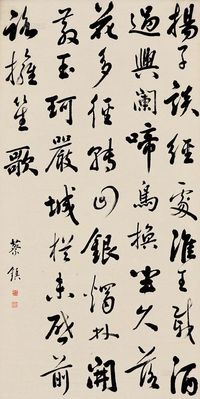 楊子談經處淮王載酒
過興闌啼鳥換坐久落
花多徑轉回銀燭林開
散玉珂嚴城時未啟前
路擁笙歌
蔡鎮